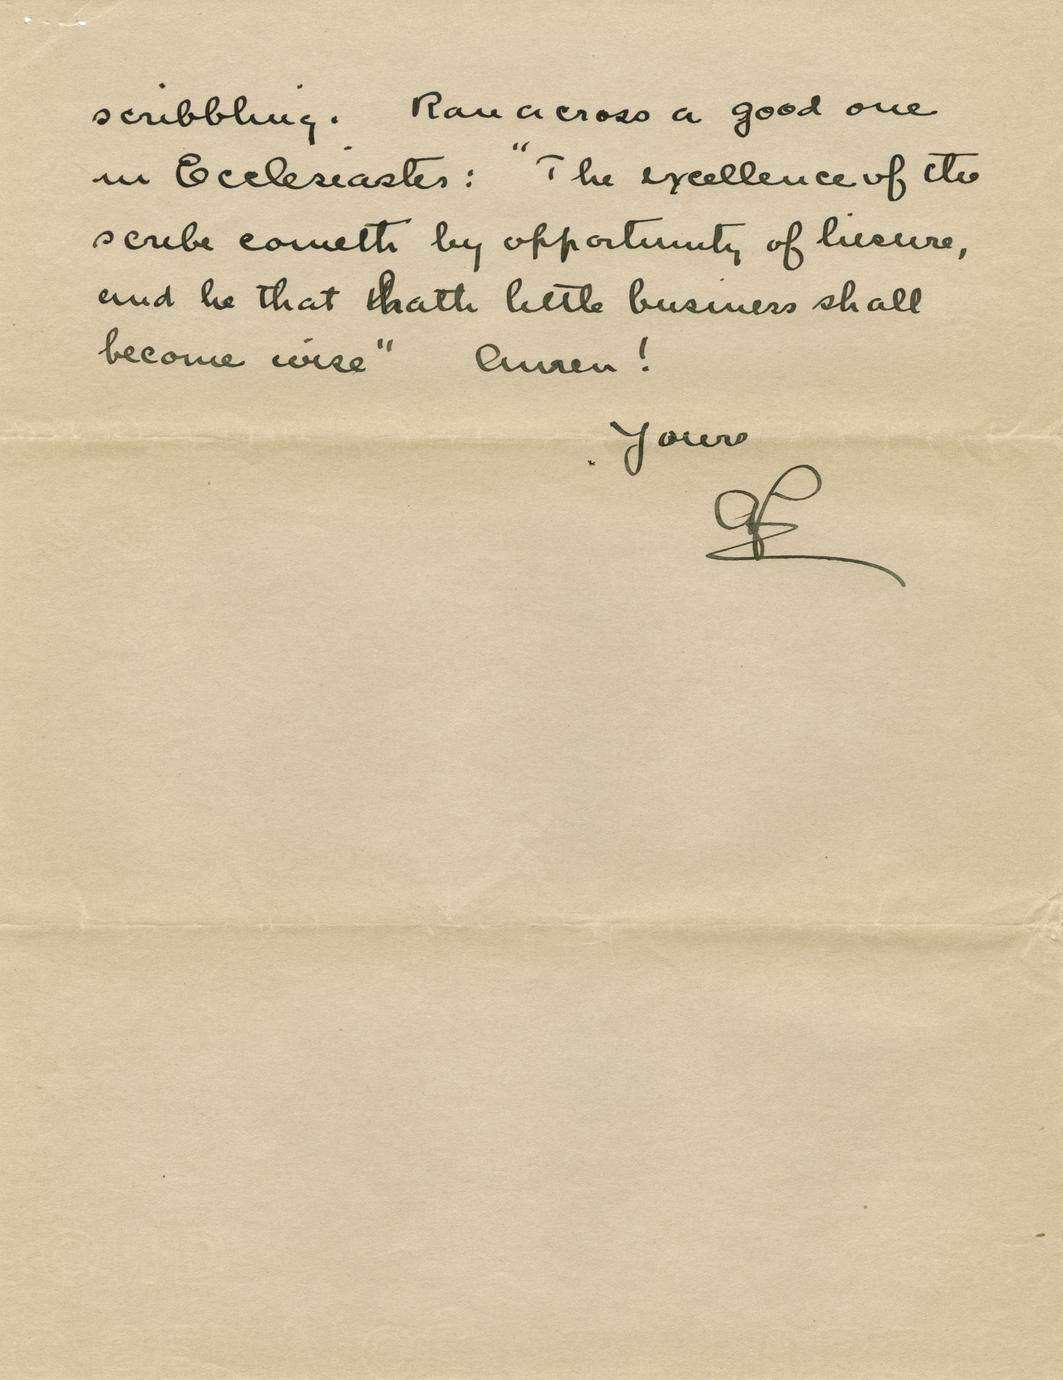 scribbling. Ran across a good one
in Ecclesiastes: "The excellence of the
scribe cometh by opportunity of liesure,
and he that hath little business shall
become wise" Amen!
Yours